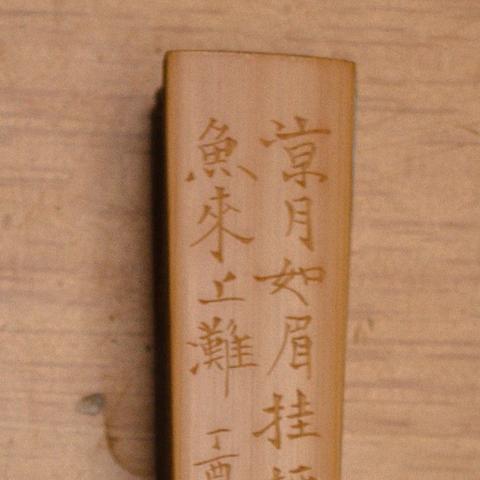 涼月如眉挂
魚來上灘
丁酉